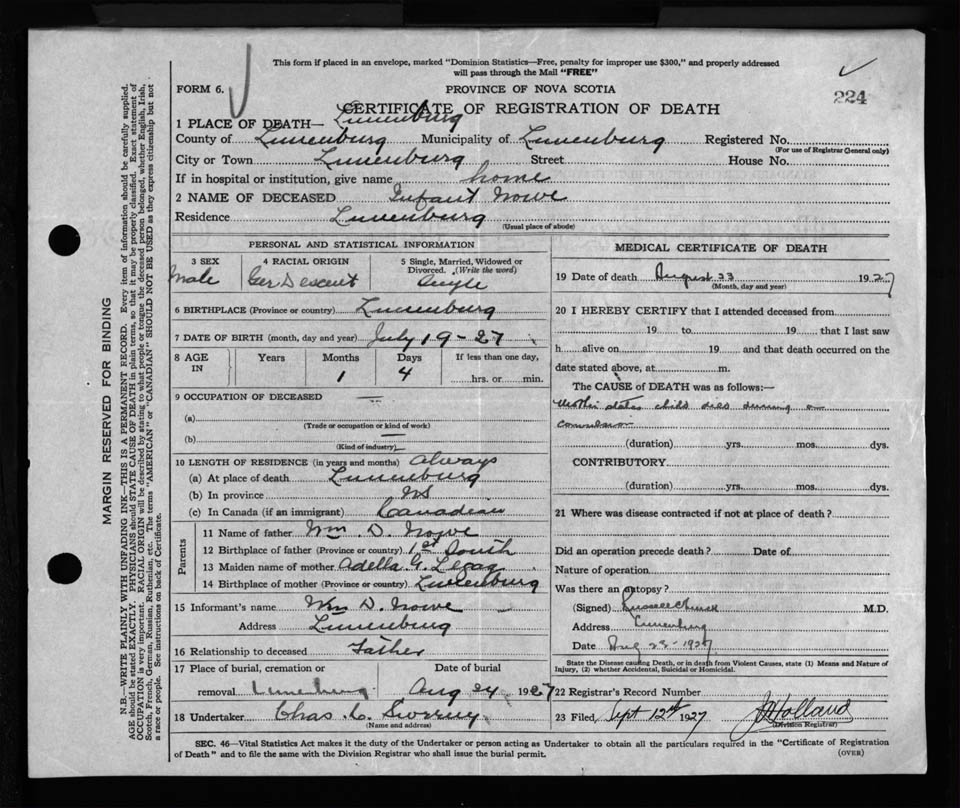 This form if placed in an envelope, marked "Dominion Statistics—Free, penalty for improper use $300," and properly addressed
will pass through the Mail "FREE"
FORM 6.
PROVINCE OF NOVA SCOTIA
224
CERTIFICATE OF REGISTRATION OF DEATH
1 PLACE OF DEATH— Lunenburg
County of Lunenburg Municipality of Lunenburg Registered No.
(For use of Registrar General only)
City or Town Lunenburg Street House No.
If in hospital or institution, give name home
2 NAME OF DECEASED Infant Nowe
Residence Lunenburg
(Usual place of abode)
PERSONAL AND STATISTICAL INFORMATION
3 SEX 4 RACIAL ORIGIN 5 Single, Married, Widowed or Divorced. (Write the word)
Male Ger Descent Single
6 BIRTHPLACE (Province or country) Lunenburg
7 DATE OF BIRTH (month, day and year) July 19-27
8 AGE IN Years Months Days If less than one day,
1 4 hrs. or min.
9 OCCUPATION OF DECEASED —
(a)
(Trade or occupation or kind of work)
(b) —
(Kind of industry)
10 LENGTH OF RESIDENCE (in years and months) Always
(a) At place of death Lunenburg
(b) In province NS
(c) In Canada (if an immigrant) Canadian
Parents
11 Name of father Wm. D. Nowe
12 Birthplace of father (Province or country) 1st South
13 Maiden name of mother Adella G.
14 Birthplace of mother (Province or country) Lunenburg
15 Informant's name Wm D. Nowe
Address Lunenburg
16 Relationship to deceased Father
17 Place of burial, cremation or Date of burial
removal Lunenburg Aug 24 1927
18 Undertaker Chas. L.
(Name and address)
MEDICAL CERTIFICATE OF DEATH
19 Date of death August 23 1927
(Month, day and year)
20 I HEREBY CERTIFY that I attended deceased from
19 to 19 that I last saw
h alive on 19 and that death occurred on the
date stated above, at m.
The CAUSE of DEATH was as follows:—
Mother states child died during a
convulsion
(duration) yrs. mos. dys.
CONTRIBUTORY
(duration) yrs. mos. dys.
21 Where was disease contracted if not at place of death?
Did an operation precede death? Date of
Nature of operation
Was there an autopsy?
(Signed) M.D.
Address Lunenburg
Date Aug 23-1927
State the Disease causing Death, or in death from Violent Causes, state (1) Means and Nature of
Injury, (2) whether Accidental, Suicidal or Homicidal.
22 Registrar's Record Number
23 Filed, Sept 12th 1927 Holland
(Division Registrar)
SEC. 46—Vital Statistics Act makes it the duty of the Undertaker or person acting as Undertaker to obtain all the particulars required in the "Certificate of Registration
of Death" and to file the same with the Division Registrar who shall issue the burial permit.
(OVER)
MARGIN RESERVED FOR BINDING
N.B.—WRITE PLAINLY WITH UNFADING INK—THIS IS A PERMANENT RECORD. Every item of information should be carefully supplied.
AGE should be stated EXACTLY. PHYSICIANS should STATE CAUSE OF DEATH in plain terms, so that it may be properly classified. Exact statement of
OCCUPATION is very important. RACIAL ORIGIN will be described by stating to what people or tongue the deceased person belonged, whether English, Irish,
Scotch, French, German, Russian, Ruthenian, etc. The terms "AMERICAN" or "CANADIAN" SHOULD NOT BE USED as they express citizenship but not
a race or people. See instructions on back of Certificate.